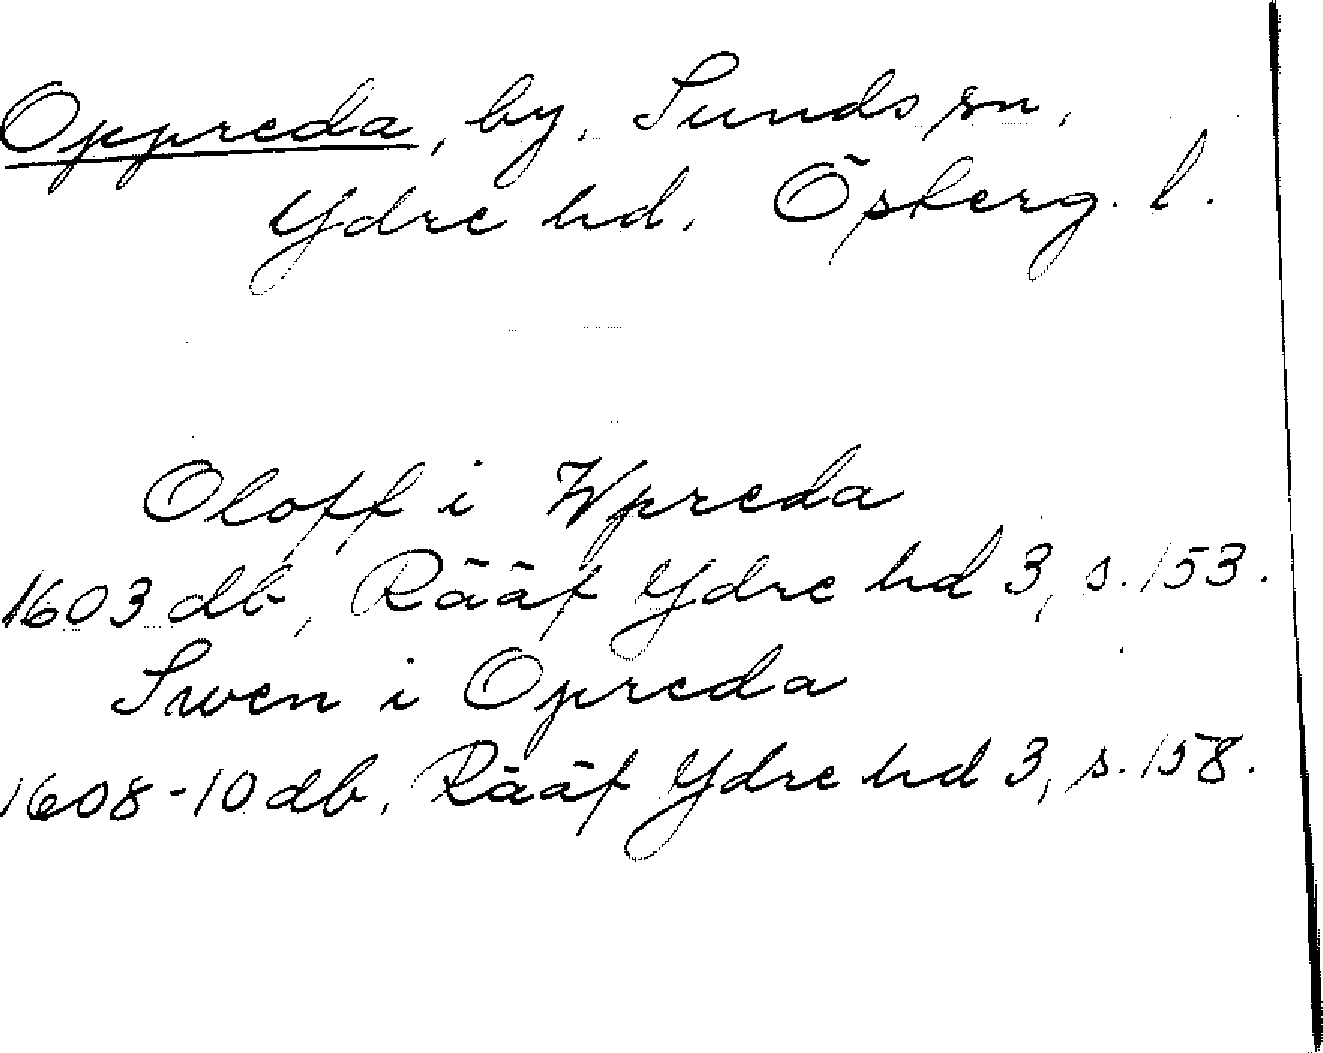 Oppreda, by, Sunds sn,
Ydre hd, Österg. l.
Oloff i Wpreda
1603 db, Rääf Ydre hd 3, s. 153.
Swen i Opreda
1608-10 db, Rääf Ydre hd 3, s. 158.